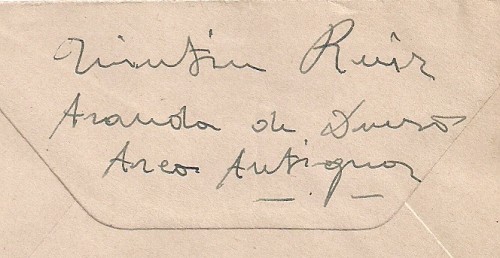 Quintin Ruiz
Aranda de Duero
Arco Antiguo